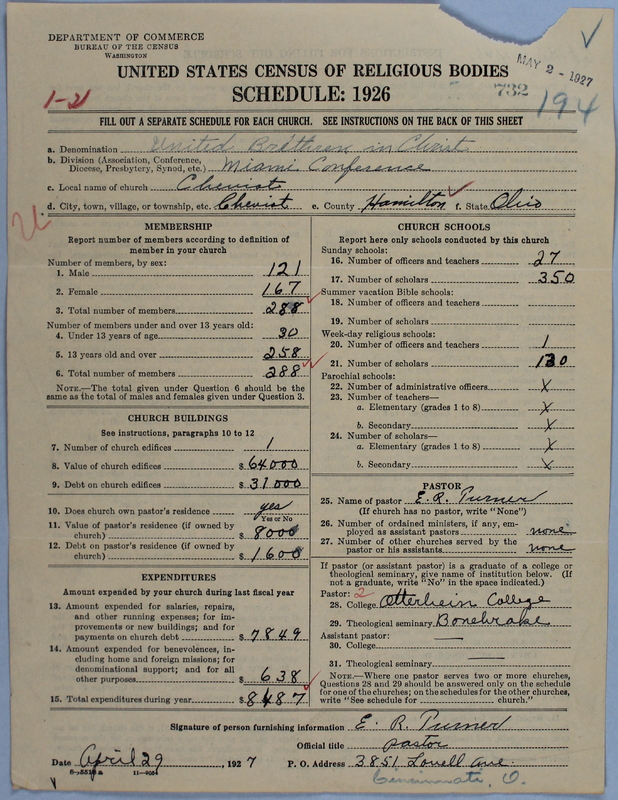 DEPARTMENT OF COMMERCE
BUREAU OF THE CENSUS
WASHINGTON
MAY 2 - 1927
UNITED STATES CENSUS OF RELIGIOUS BODIES
1-21
SCHEDULE: 1926
732
194
FILL OUT A SEPARATE SCHEDULE FOR EACH CHURCH. SEE INSTRUCTIONS ON THE BACK OF THIS SHEET
a. Denomination United Brethren in Christ
b. Division (Association, Conference, Diocese, Presbytery, Synod, etc.) Miami Conference
c. Local name of church Cheviot
d. City, town, village, or township, etc. Cheviot e. County Hamilton f. State Ohio
MEMBERSHIP
Report number of members according to definition of
member in your church
Number of members, by sex:
1. Male 121
2. Female 167
3. Total number of members 288
Number of members under and over 13 years old:
4. Under 13 years of age 30
5. 13 years old and over 258
6. Total number of members 288
NOTE.—The total given under Question 6 should be the
same as the total of males and females given under Question 3.
CHURCH BUILDINGS
See instructions, paragraphs 10 to 12
7. Number of church edifices 1
8. Value of church edifices $ 64000
9. Debt on church edifices $ 31000
10. Does church own pastor's residence yes
Yes or No
11. Value of pastor's residence (if owned by
church) $ 8000
12. Debt on pastor's residence (if owned by
church) $ 1600
EXPENDITURES
Amount expended by your church during last fiscal year
13. Amount expended for salaries, repairs,
and other running expenses; for im-
provements or new buildings; and for
payments on church debt $ 7849
14. Amount expended for benevolences, in-
cluding home and foreign missions; for
denominational support; and for all
other purposes $ 638
15. Total expenditures during year $ 8487
CHURCH SCHOOLS
Report here only schools conducted by this church
Sunday schools:
16. Number of officers and teachers 27
17. Number of scholars 350
Summer vacation Bible schools:
18. Number of officers and teachers
19. Number of scholars
Week-day religious schools:
20. Number of officers and teachers 1
21. Number of scholars 130
Parochial schools:
22. Number of administrative officers X
23. Number of teachers—
a. Elementary (grades 1 to 8) X
b. Secondary X
24. Number of scholars—
a. Elementary (grades 1 to 8) X
b. Secondary X
PASTOR
25. Name of pastor E. R. Turner
(If church has no pastor, write "None")
26. Number of ordained ministers, if any, em-
ployed as assistant pastors none
27. Number of other churches served by the
pastor or his assistants none
If pastor (or assistant pastor) is a graduate of a college or
theological seminary, give name of institution below. (If
not a graduate, write "No" in the space indicated.)
Pastor: 2
28. College Otterbein College
29. Theological seminary Bonebrake
Assistant pastor:
30. College
31. Theological seminary
NOTE.—Where one pastor serves two or more churches,
Questions 28 and 29 should be answered only on the schedule
for one of the churches; on the schedules for the other churches,
write "See schedule for church."
Signature of person furnishing information E. R. Turner
Official title pastor
Date April 29, 1927 P. O. Address 3851 Lovell Ave.
Cincinnati, O.
11-9064